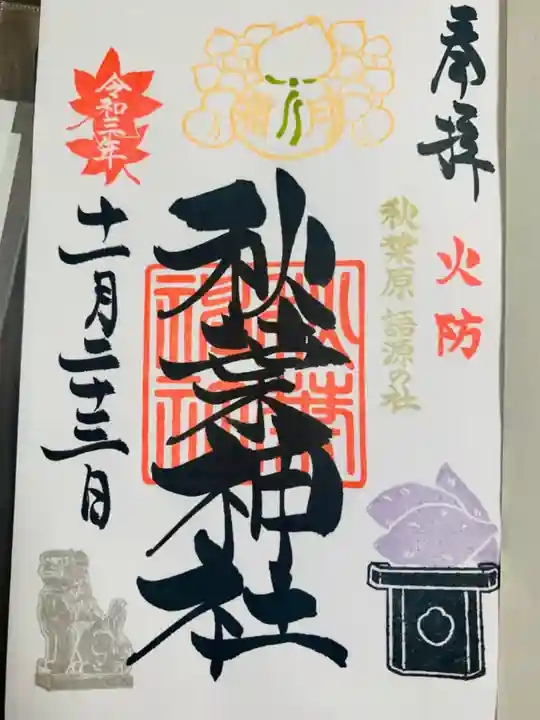 奉拝
火防
秋葉原 語源の社
秋葉神社
秋葉神社
令和三年
十一月二十三日